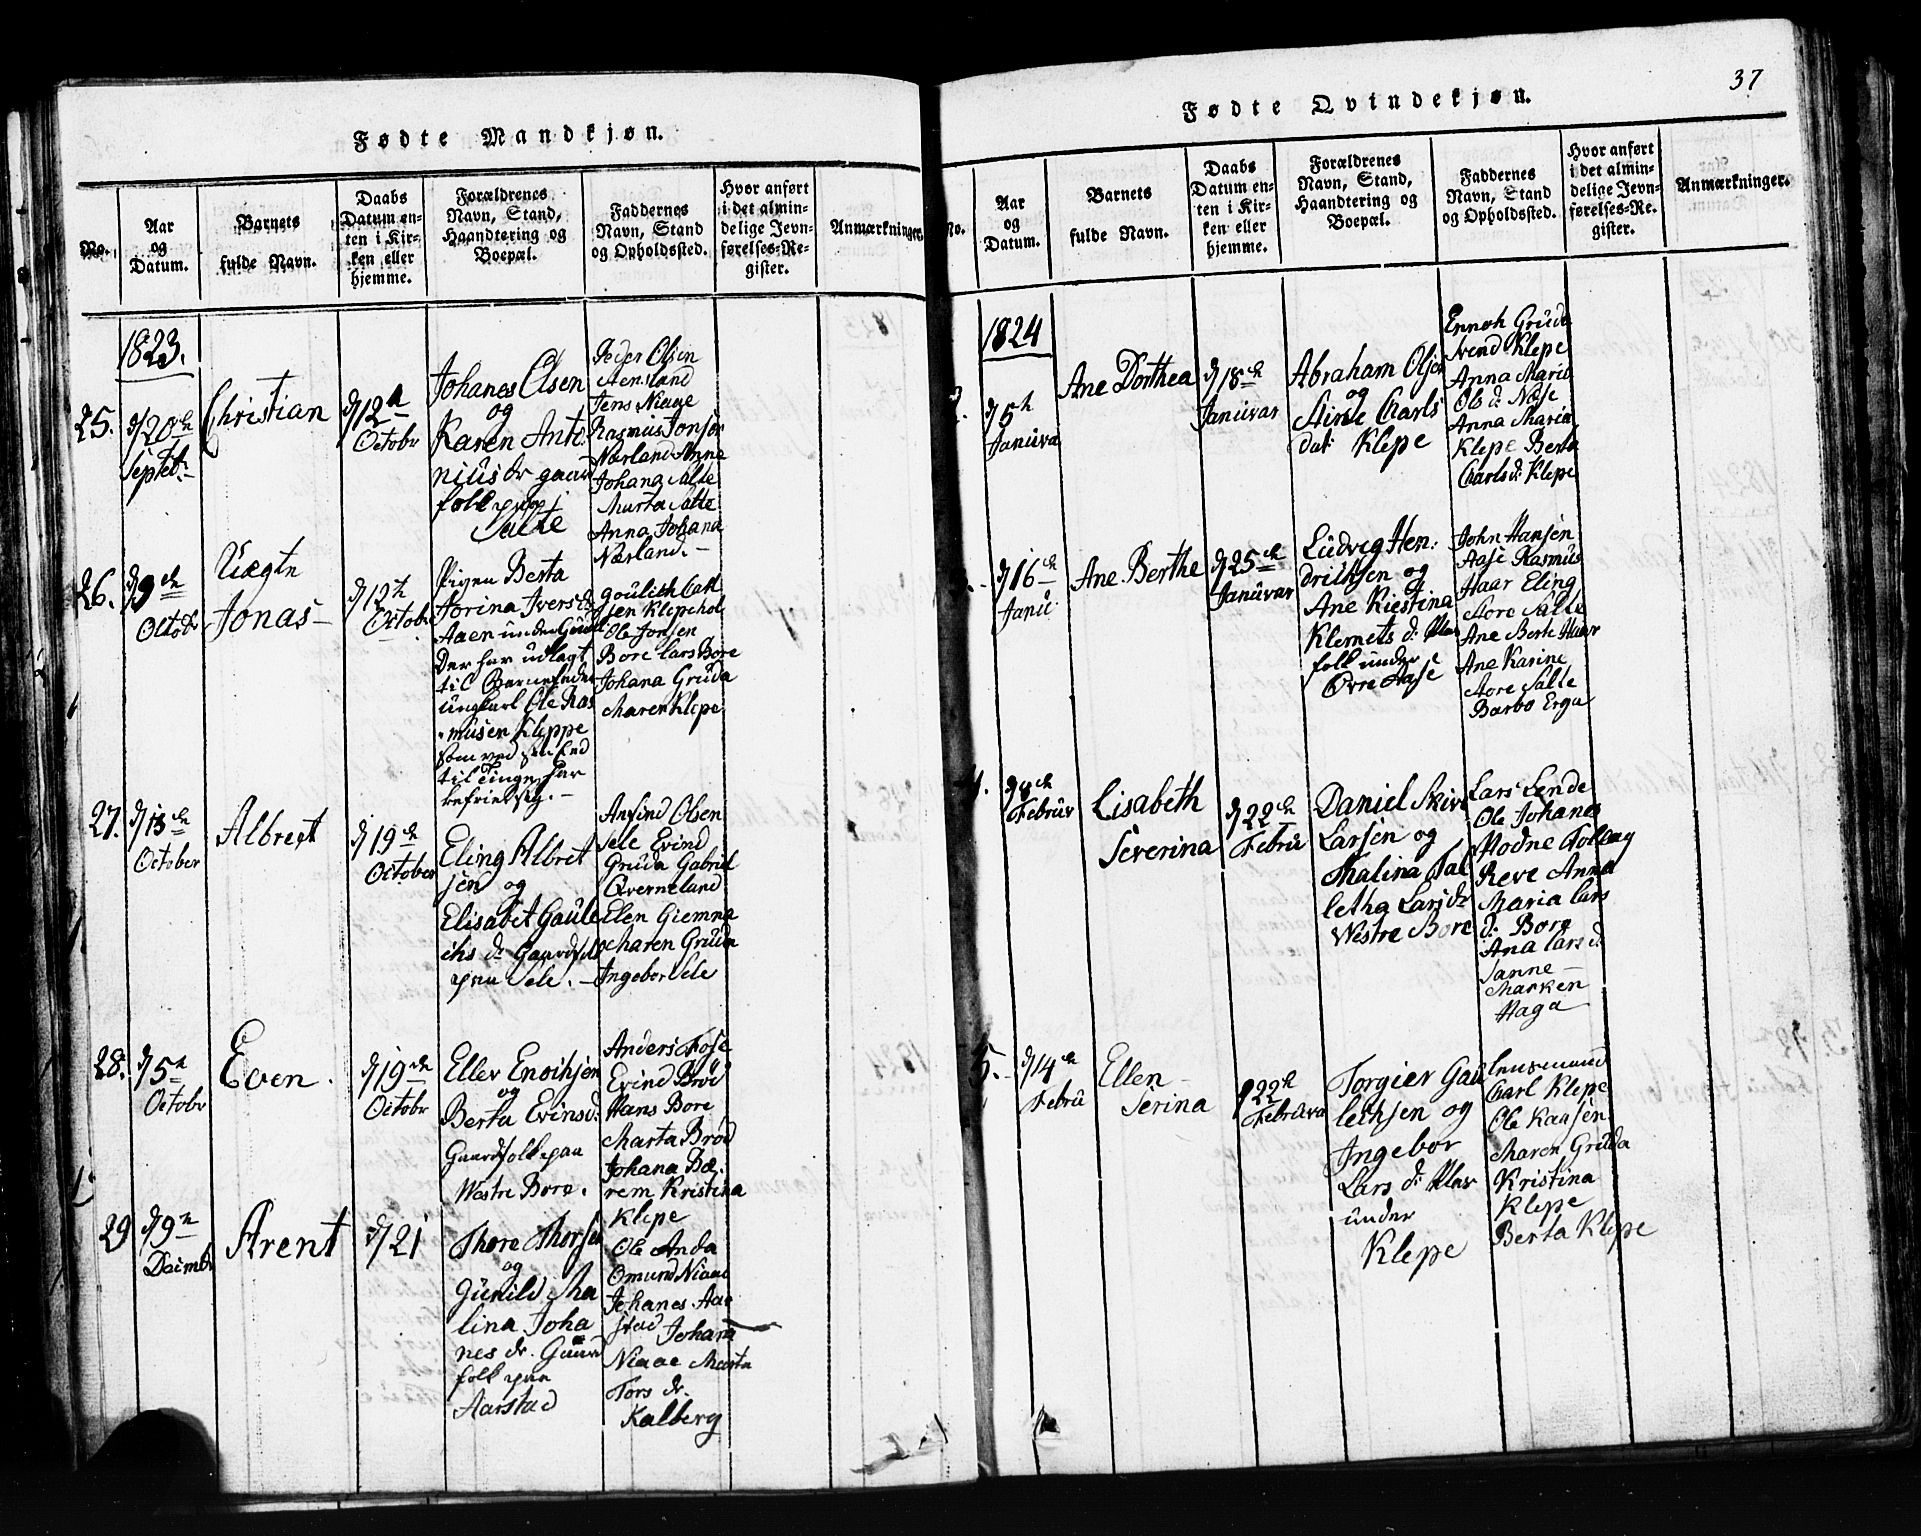 Fødte Mandkjøn.
No.
Aar
og
Datum.
Barnets
fulde Navn.
Daabs
Datum en-
ten i Kir-
ken eller
hjemme.
Forældrenes
Navn, Stand,
Haandtering og
Boepæl.
Faddernes
Navn, Stand
og Opholdssted.
Hvor anført
i det almin-
delige Jevn-
førelses-Re-
gister.
Anmærkninger.
1823.
25.
d/20de
Septebr.
Christian
d/12te
Octobr
Johanes Olsen
og
Karen Anto
niusdr gaard
folk paa
Salte
Peder Olsen
Hensland
Jens Niaae
Rasmus Jonsen
Nærland Anna
Johana Salte
Marta Salte
Anna Johana
Nærland.
26.
d/9de
Octobr
Uægte
Jonas
d/12te
Octobr
Pigen Berta
Jorina Iversd
Aaen under Gruda
Der har udlagt
til Barnefader
ungkarl Ole Ras
musen Kleppe
som ved
til Tinge har
befriet sig.
Goulich Carl
sen Klepehol
Ole Jonsen
Bore Lars Bore
Johana Gruda
Maren Klepe
27.
d/13de
October
Albreet
d/19de
October
Eling Albret
sen og
Elisabet Gaule
ichs dr Gaardfolk
paa Sele.
Anfind Olsen
Sele Evind
Gruda Gabriel
Qverneland
Elen Giemna
Maren Gruda
Ingebor Sele
28.
d/5te
Octobr
Even.
d/19de
Octobr
Eller Enochsen
og
Berta Evinsd:
Gaardfolk paa
Westre Bore.
Anders Fose
Evind Brød
Hans Bore
Marta Brød
Johana Bæ
rem Kristina
Klepe
29
d/9de
Decmbr
Arent
d/21
Thore Thorsen
og
Gunild Ma
lina Joha
nes dr. Gaard
folk paa
Aarstad
Ole Anda
Omund Niaae
Johanes Aar
stad Johana
Niaae Marta
Tors dr.
Kalberg
37
Fødte Qvindekjøn.
No.
Aar
og
Datum.
Barnets
fulde Navn.
Daabs
Datum en-
ten i Kir-
ken eller
hjemme.
Forældrenes
Navn, Stand,
Haandtering og
Boepæl.
Faddernes
Navn, Stand
og Opholdssted.
Hvor anført
i det almin-
delige Jevn-
førelses-Re-
gister.
Anmærkninger.
1824
2.
d/5te
Januva
Ane Dorthea
d/18de
Januvar
Abraham Olsen
og
Sirile Carls
dat Klepe
Ennoh Gruda
Svend Klepe
Anna Marie
Ols d: Næse
Anna Maria
Klepe Berta
Carlsd: Klepe
d/16de
Janu
Ane Berthe
d/25de
Januvar
Ludvig Hen:
drichsen og
Ane Kiestina
Klemets d: Plas
folk under
Øvre Aase
John Hansen
Aase Rasmus
Haar Eling
Store Salte
Ane Berte Haar
Ane Karine
Store Salte
Barbo Erga
4.
d/8de
Februv
Lisabeth
Severina
d/22de
Febru
Daniel Skive
Larsen og
Thalina Tal
letha Larsdr
Westre Bore
Lars Lende
Ole Johanes
Hodne Tolleag
Reve Anna
Maria Lars
d: Bore
Ana Lars d
Sanne
Marken
Haga
5.
d/14de
Febru
Ellen
Serina
d/22de
Februva
Torgier Gau
lechsen og
Ingebor
Lars d: Plas
under
Klepe
Lensmand
Carl Klepe
Ole Kaasen
Maren Gruda
Kristina
Klepe
Berta Klepe